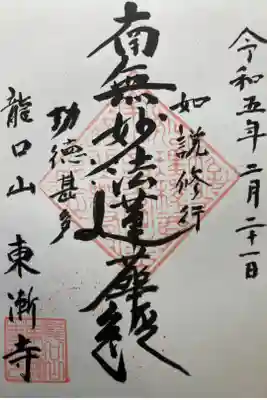 令和五年二月二十一日
如説修行
南無妙法蓮華経
功徳甚多
龍口山 東漸寺